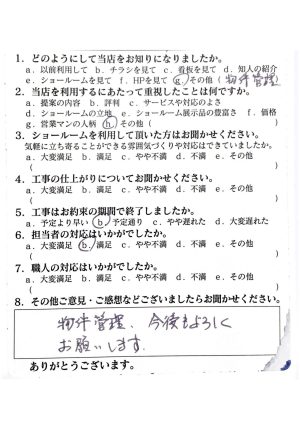 1. どのようにして当店をお知りになりましたか。
a. 以前利用して b. チラシを見て c. 看板を見て d. 知人の紹介
e. ショールームを見て f. HPを見て g. その他（物件管理
2. 当店を利用するにあたって重視したことは何ですか。
a. 提案の内容 b. 評判 c. サービスや対応のよさ
d. ショールームの立地 e. ショールーム展示品の豊富さ f. 価格
g. 営業マンの人柄 h. その他（ ）
3. ショールームを利用して頂いた方はお聞かせください。
気軽に立ち寄ることができる雰囲気づくりや対応はできていましたか。
a. 大変満足 b. 満足 c. やや不満 d. 不満 e. その他
( )
4. 工事の仕上がりについてお聞かせください。
a. 大変満足 b. 満足 c. やや不満 d. 不満 e. その他
( )
5. 工事はお約束の期間で終了しましたか。
a. 予定より早い b. 予定通り c. やや遅れた d. 大変遅れた
6. 担当者の対応はいかがでしたか。
a. 大変満足 b. 満足 c. やや不満 d. 不満 e. その他
( )
7. 職人の対応はいかがでしたか。
a. 大変満足 b. 満足 c. やや不満 d. 不満 e. その他
( )
8. その他ご意見・ご感想などございましたらお聞かせください。
物件管理、今後もよろしく
お願いします.
ありがとうございます。